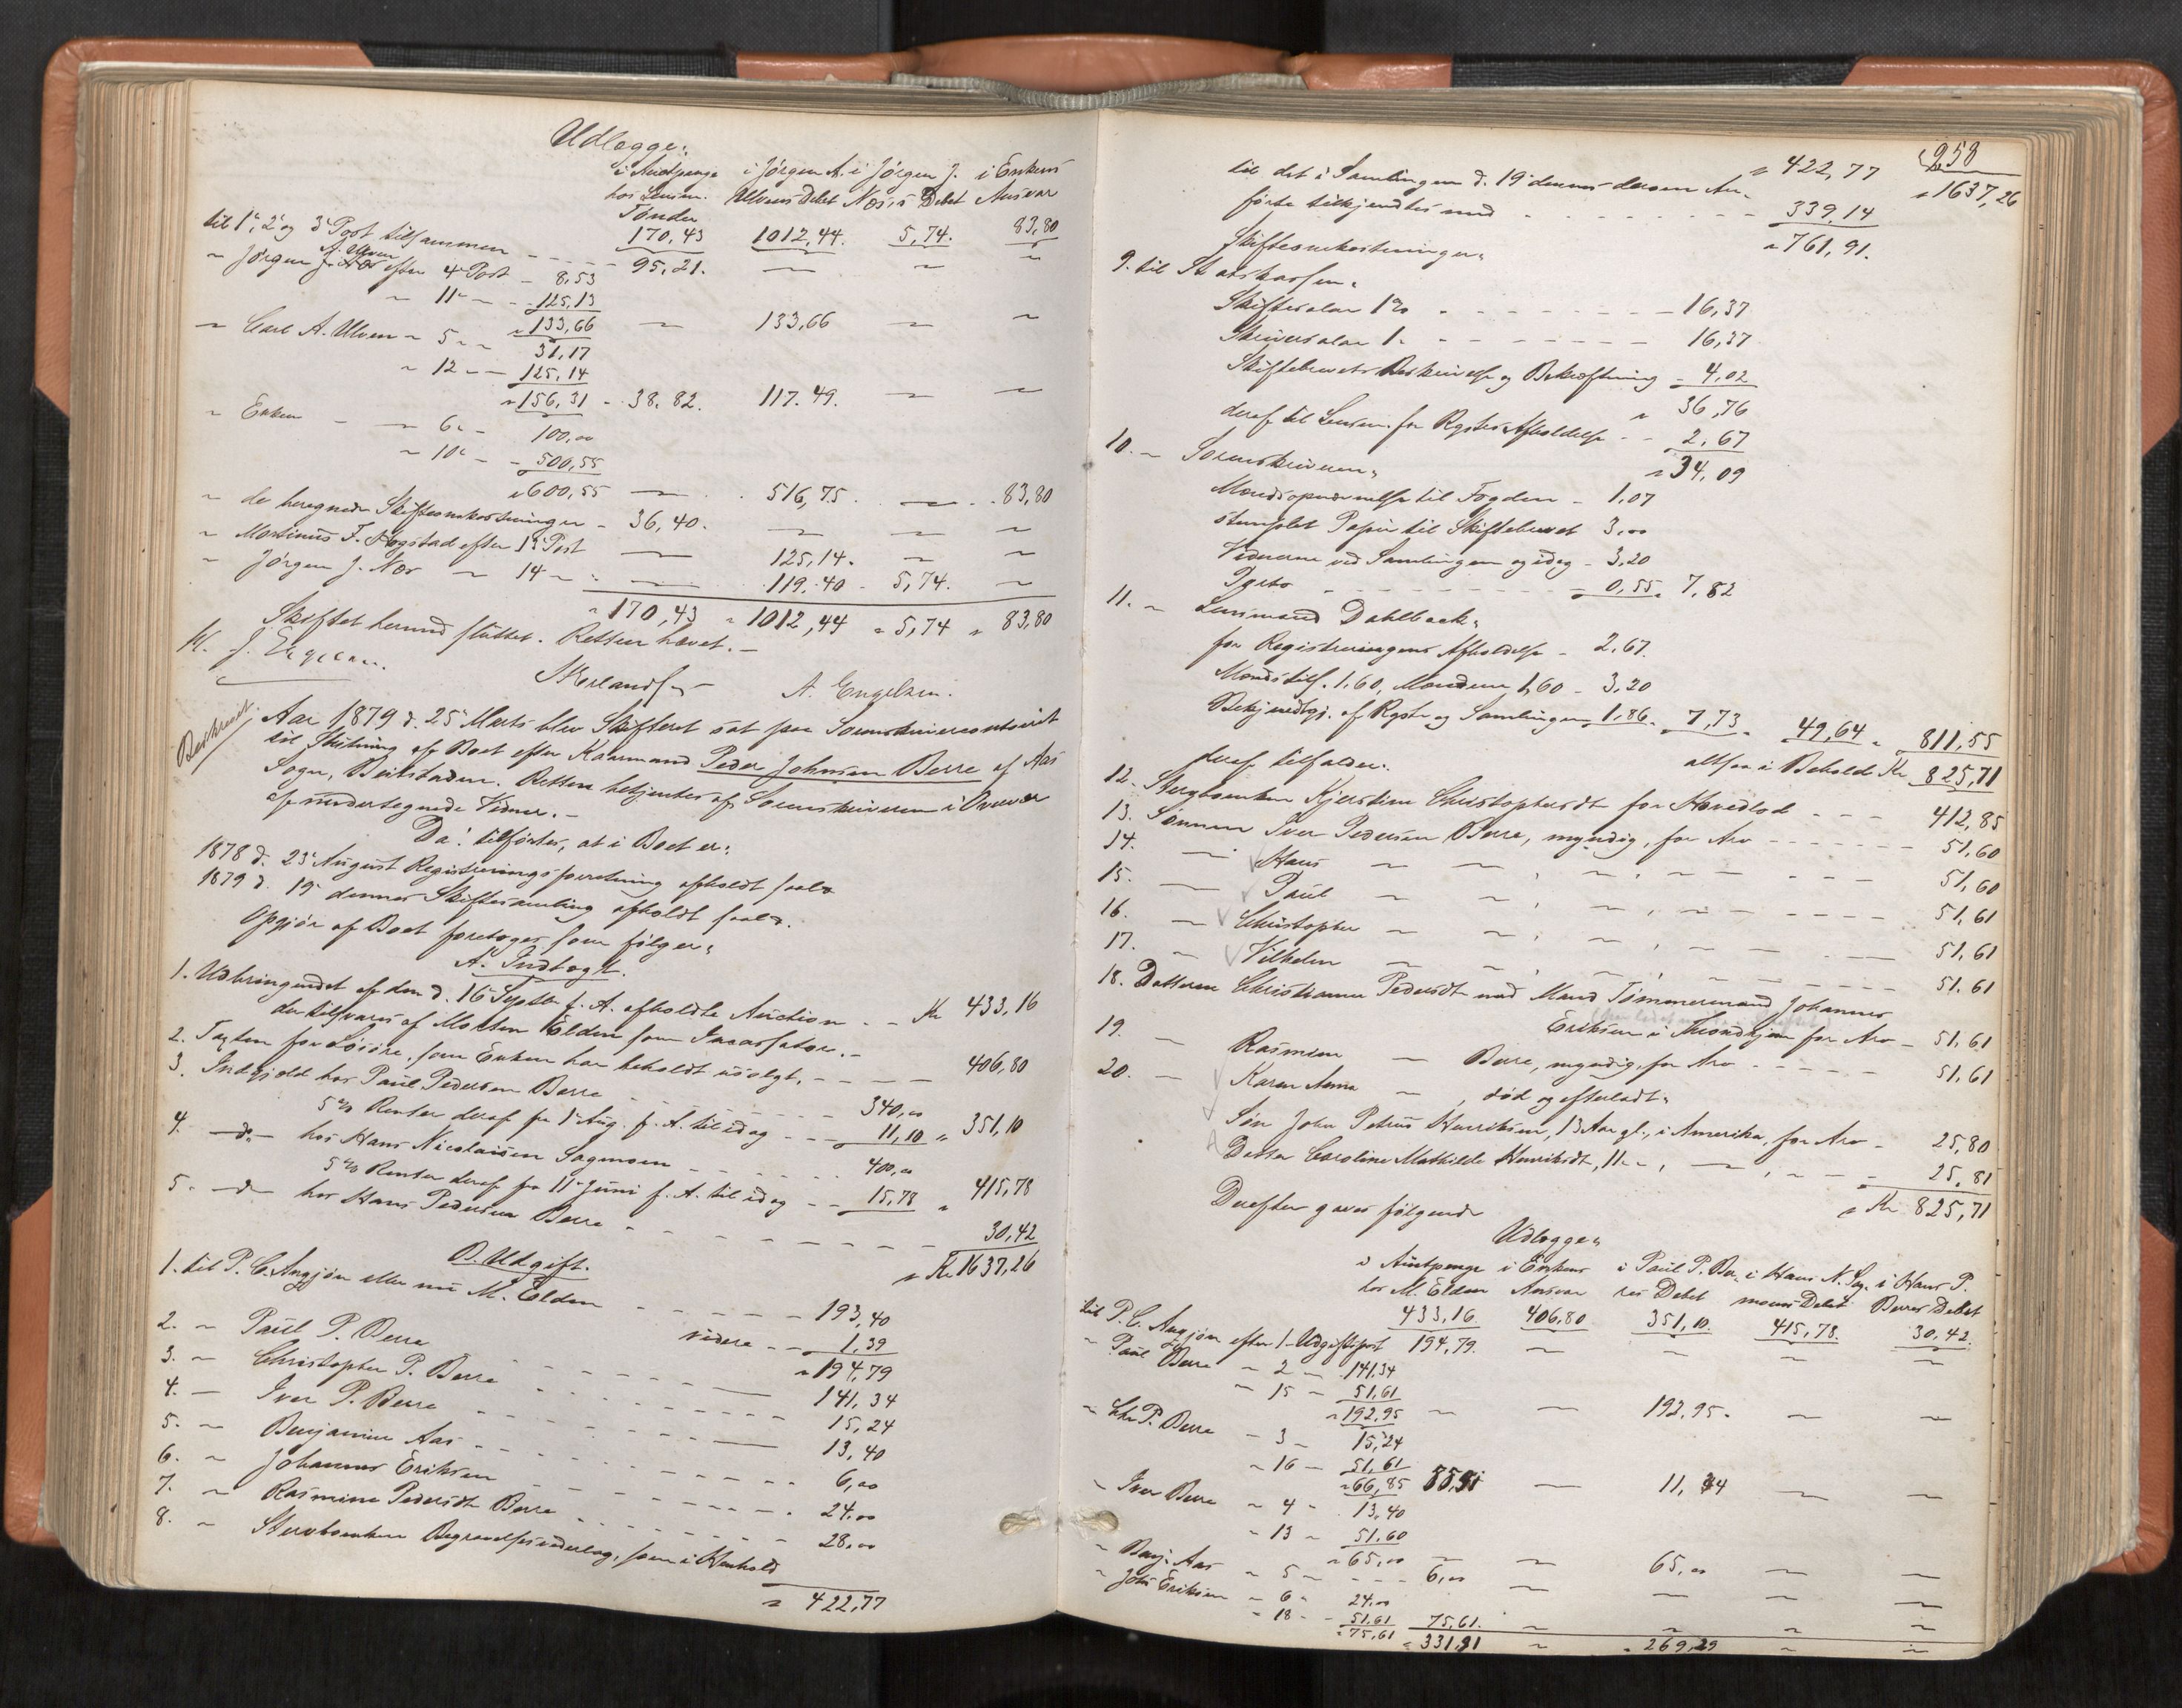 Udlægge:
i Auctpenge i Jørgen A. i Jørgen J. i Enkens
hos Lensm. Ulvens Debet Næs's Debet Ansvar
Tønder
til 1ᵉ, 2ᵉ og 3ᵉ Post tilsammen 170,43 1012,44. 5,74. 83,80
" Jørgen A. Ulven efter 4ᵉ Post - 8,53 95,21. — — —
" 11ᵉ — 125,13
" 133,66 — 133,66 — —
" Carl A. Ulven " 5 " " 31,17
" 12 " — 125,14
" 156,31 - 38,82. 117.49. — —
" Enken — " 6 " - 100,00
" 10ᵉ - - 500,55
" 600,55 — 516,75. — 83,80
" de beregnede Skifteomkostninger - 36,40. — — —
" Martinus F. Hogstad efter 13 Post — 125,14. — —
" Jørgen J. Næs " 14 " — 119.40 - 5,74. —
" 170,43 " 1012,44 " 5,74 " 83,80
Skiftet hermed sluttet. Retten hævet. —
A. Engelsen.
Beskrevet.
Aar 1879 d. 25 Marts blev Skifteret sat paa Sorenskrivercontoiret
til Slutning af Boet efter Kaarmand Peder Johnsen Berre af Aas
Sogn, Beitstaden. Retten betjentes af Sorenskriveren i Overvær
af undertegnede Vidner. —
Da: tilførtes, at i Boet er:
1878 d. 23 August Registreringsforretning afholdt saal.
1879 d. 19 dennes Skiftesamling afholdt saal.
Opgjør af Boet foretoges som følger:
A. Indtægt.
1. Udbringendet af den d. 16 Septbr f. A. afholdte Auction - - Kr 433,16
der tilsvares af Morten Elden som Incassator. —
2. Taxten for Løsøre, som Enken har beholdt usolgt, — — — 406,80
3. Indgjæld hos Paul Pedersen Berre - - - 340,00
5% Renter deraf fra 1 Aug. f. A. til idag - - - 11,10 " 351,10
4. — d° — hos Hans Nicolaisen Sagmoen - - - 400,00
5% Renter deraf fra 11 Juni f. A. til idag - - 15,78 " 415,78
5. — d° — hos Hans Pedersen Berre - - - 30,42
" Kr 1637,26
B. Udgift.
1. til P. C. Angjön eller nu M. Elden - - - 193,40
videre - - 1,39
" 194,79
2. " Paul P. Berre - - - 141,34
3. " Christopher P. Berre - - - 15,24
4. — Iver P. Berre - - - 13,40
5. " Benjamin Aas - - - 6,00
6. " Johannes Eriksen - - - 24,00
7. " Rasmine Pedersdt Berre - - - 28,00
8. " Stervboenken Begravelsesvederlag, som i Henhold
" 422,77
258
" 422,77 " 1637,26
til det i Samlingen d. 19 dennes derom An-
førte tilkjendtes med - - - 339,14
" 761,91.
Skifteomkostninger:
9. til Statskassen:
Skiftesalær 1% - - - 16,37
Skriversalær 1 " - - - 16,37
Skiftebrevets Beskrivelse og Bekræftning - 4,02
" 36,76
deraf til Lensm. for Rgstrs Afholdelse - - 2,67
" 34,09
10. " Sorenskriveren:
Mændsopnævnelse til Fogden - 1,07
stemplet Papir til Skiftebrevet 3,00
Vidnerne ved Samlingen og idag - 3,20
Porto - - - 0,55. 7,82
11. " Lensmand Dahlback:
for Registreringens Afholdelse - 2,67.
Mændstils. 1,60, Mændene 1,60 - 3,20
Bekjendtgj. af Rgstr og Samlingen 1,86. 7,73 " 49,64 " 811,55
altsaa i Behold Kr 825,71
deraf tilfalder:
12. Stervboenken Kjerstine Christophersdt for Hovedlod - - - 412,85
13. Sønnen Iver Pedersen Berre, myndig, for Arv - - - 51,60
14. — Hans — — , — , — - - - 51,60
15. — Paul — — , — , — - - - 51,61
16. — Christopher — — , — , — - - - 51,61
17. — Vilhelm — — , — , — - - - 51.61
18. Datteren Christianna Pedersdt med Mand Tømmermand Johannes
Eriksen i Trondhjem for Arv - 51,61
19. — Rasmine — Berre, myndig, for Arv - - - 51,61
20. — Karen Anna — , død og efterladt:
Søn John Petrus Henriksen, 13 Aar gl., i Amerika, for Arv - 25,80
Datter Caroline Mathilde Henriksdt, 11 " " , — , " — - 25,81
" Kr 825,71
Derefter gaves følgende
Udlægge:
i Auctpenge i Enkens i Paul P. Ber- i Hans N. Sag- i Hans P.
hos M. Elden Ansvar res Debet moens Debet Berres Debet
433,16. 406,80 351,10. 415,78. 30,42.
til P. C. Angjön efter 1 Udgiftspost 194,79. — — — —
" Paul Berre " 2 — 141,34
" 15 — 51,61
" 192,95 — — 192,95. — —
" Chr P. Berre - 3 - 15,24
" 16 — 51,61
" 66,85 — 11,
" Iver Berre " 4 " 13,40
" 13 " 51,60
" 65,00 — — 65,00 — —
" Benj. Aas " 5 " - - - 6,00 — — — —
" Johs Eriksen " 6 " 24,00
" 18 - - 51,61 75,61. — — — —
" 75,61 " 331,31 " " 269,29 " "